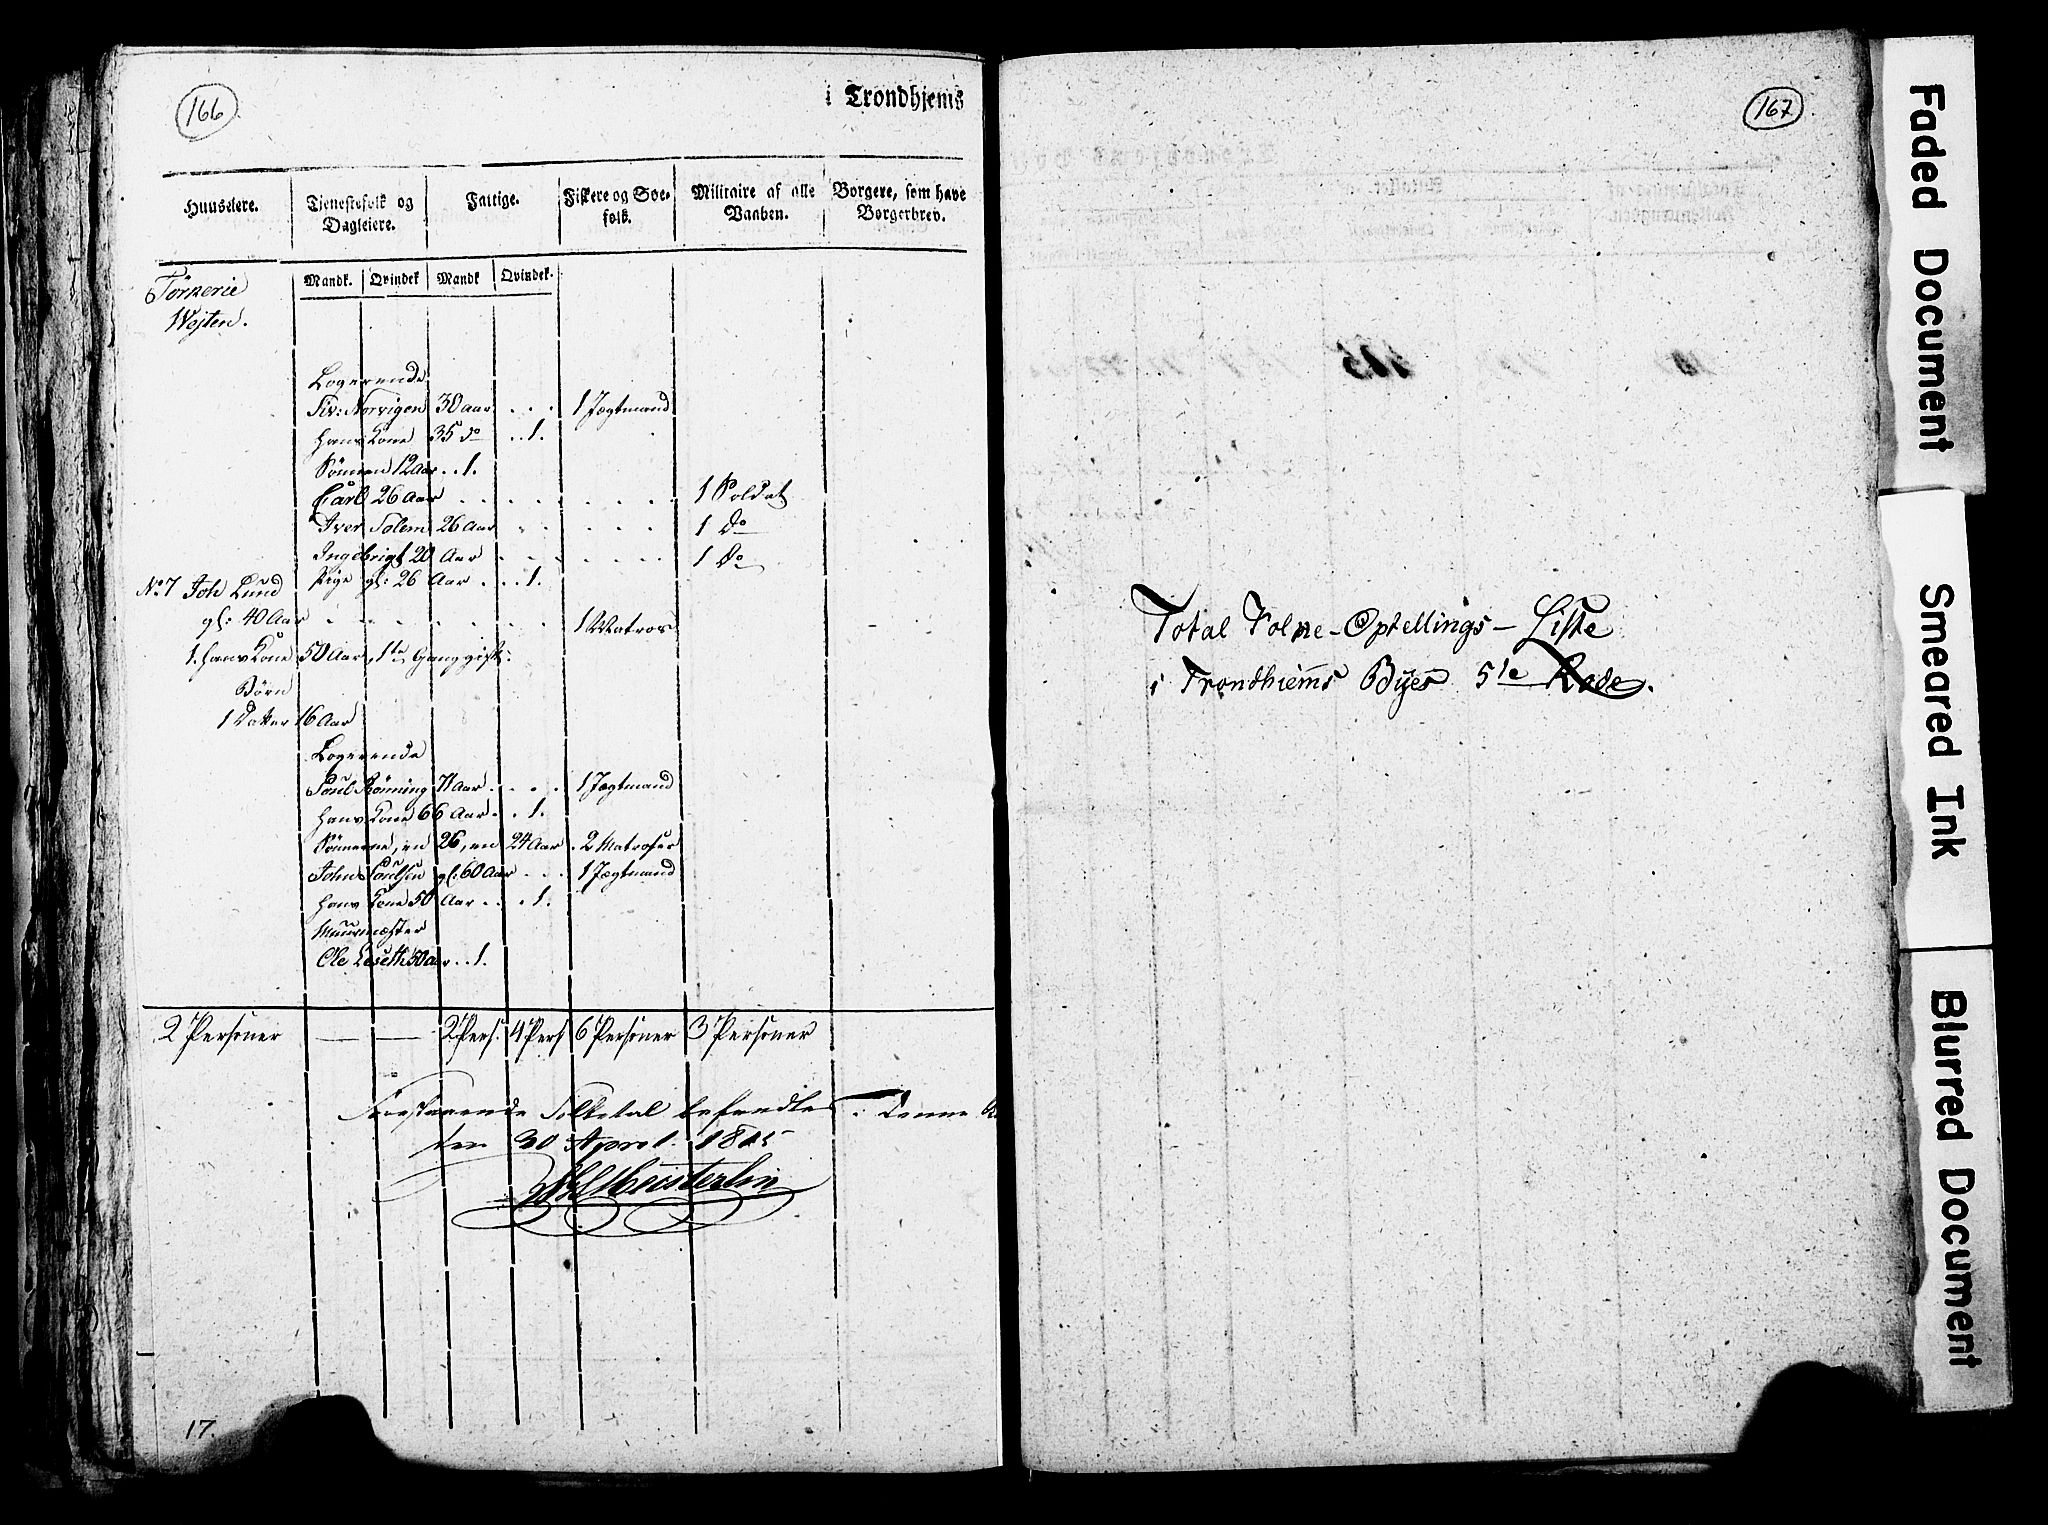 166
i Trondhjems
Huuseiere. Tjenestefolk og Dagleiere. Fattige. Fiskere og Søefolk. Militaire af alle Vaaben. Borgere, som have Borgerbrev.
Mandk. Qvindek Mandk Qvindek.
Wejten.
Logerende
Siv: Norvigen 30 aar . . . 1 Jægtmand
hans Kone 35 do . . 1.
Sönnen 12 Aar . . 1.
Carl 26 Aar . . . . . . 1 Soldat
Iver Solem 26 Aar . . . . . 1 Do
Ingebrigt 20 Aar . . . . . 1 Do
No 7 Joh Lund Pige gl: 26 Aar . . . 1.
gl: 40 Aar . . . . . 1 Matros
1. hans Kone 50 Aar, 1te Gang gift.
Börn
1 Datter 16 Aar
Logerende
Poul Rönning 71 Aar . . . . 1 Jægtmand
hans Kone 66 Aar . . 1.
Sönnerne, en 26, en 24 Aar . 2 Matroser
John Poulsen gl: 60 Aar . . . 1 Jægtmand
hans Kone 50 Aar . . . 1.
Muurmester
Ole Leseth 50 aar . . 1.
2 Personer — — 2 Pers. 4 Pers 6 Personer 3 Personer
Foestaaende Folketal befandtes i denne
den 30 April 1815
Meisterlin
17.
167
Total Folke-Optellings-Liste
i Trondhiems Byes 5te Rode.
Faded Document
Smeared Ink
Blurred Document